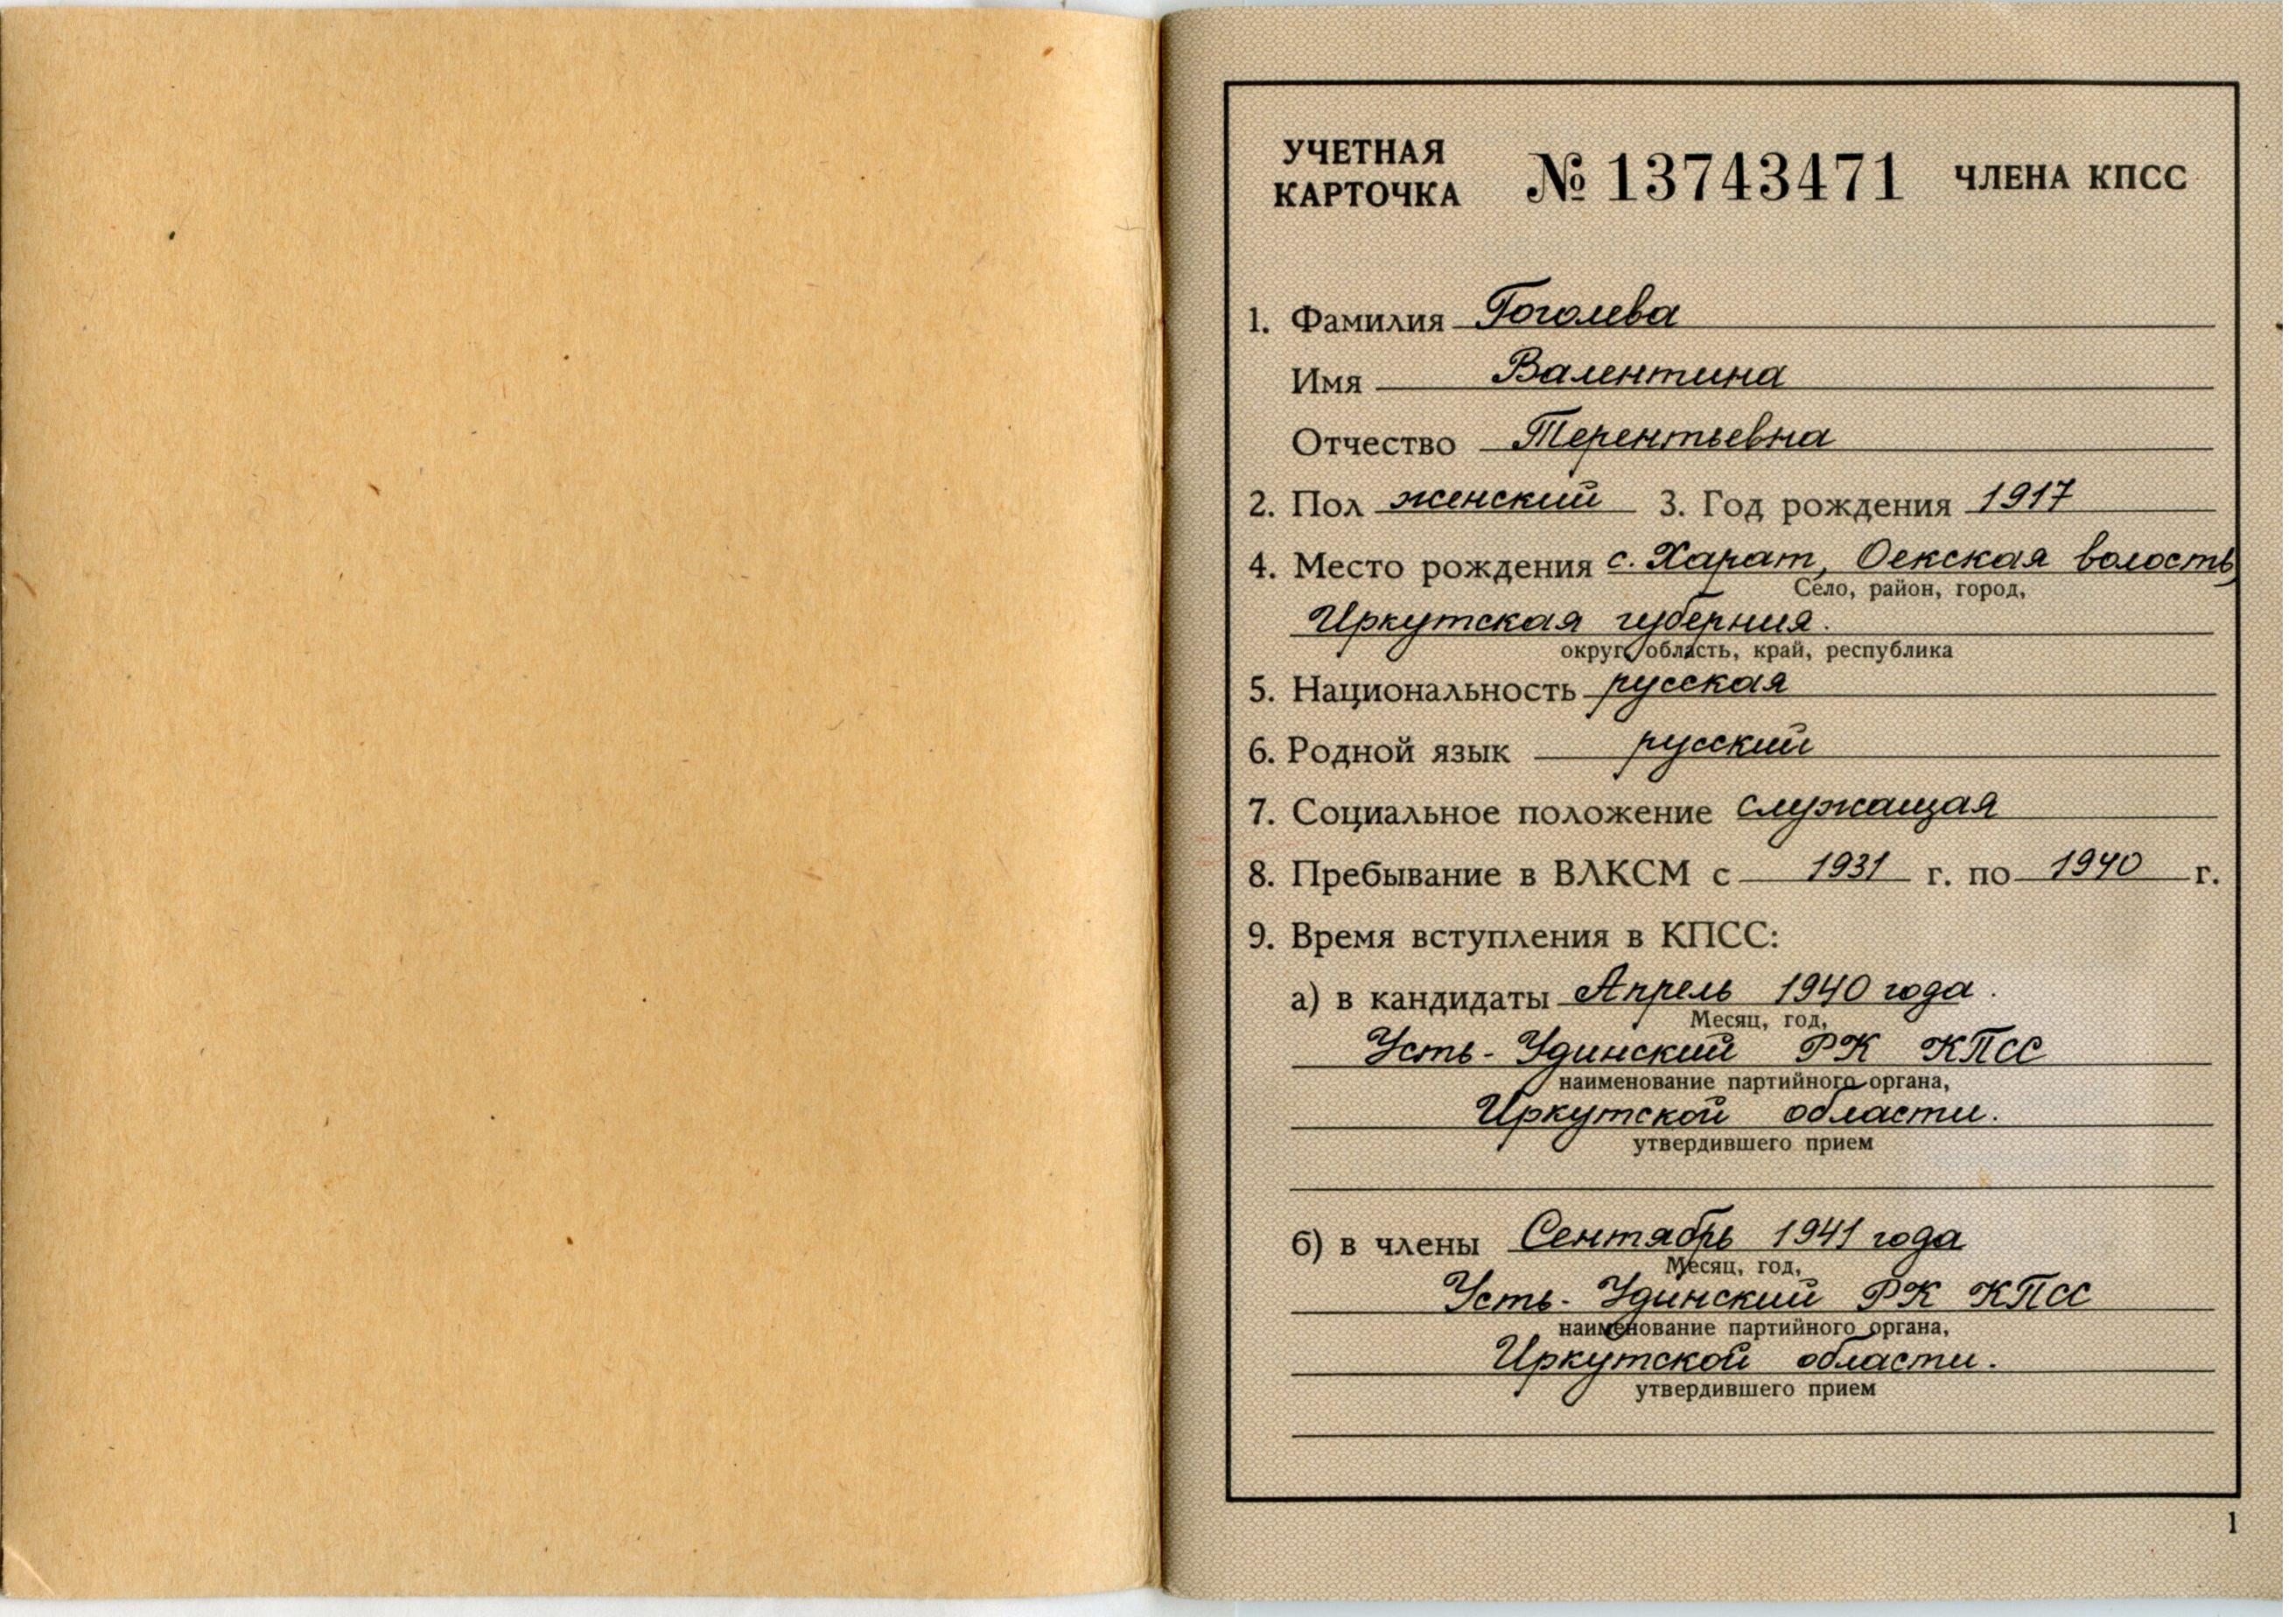 УЧЕТНАЯ
КАРТОЧКА № 13743471 ЧЛЕНА КПСС
1. Фамилия Гоголева
Имя Валентина
Отчество Терентьевна
2. Пол женский 3. Год рождения 1917
4. Место рождения с. Харат, Оекская волость,
Село, район, город,
Иркутская губерния.
округ, область, край, республика
5. Национальность русская
6. Родной язык русский
7. Социальное положение служащая
8. Пребывание в ВЛКСМ с 1931 г. по 1940 г.
9. Время вступления в КПСС:
а) в кандидаты Апрель 1940 года.
Месяц, год,
Усть-Удинский РК КПСС
наименование партийного органа,
Иркутской области.
утвердившего прием
б) в члены Сентябрь 1941 года
Месяц, год,
Усть-Удинский РК КПСС
наименование партийного органа,
Иркутской области.
утвердившего прием
1